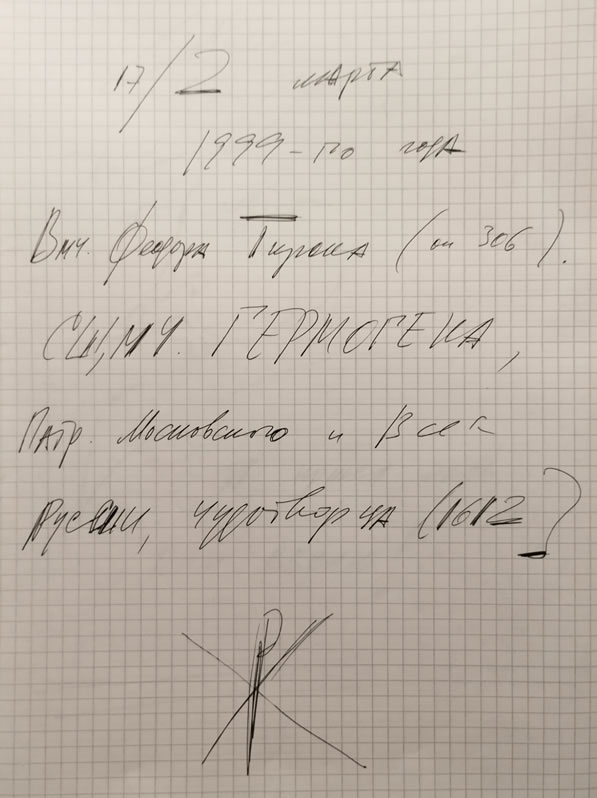 17/2 марта
1999-го года
Вмч. Феодора Тирона (ок 306).
СЩМЧ. ГЕРМОГЕНА,
Патр. Московского и Всея
Руссии, чудотворца (1612)